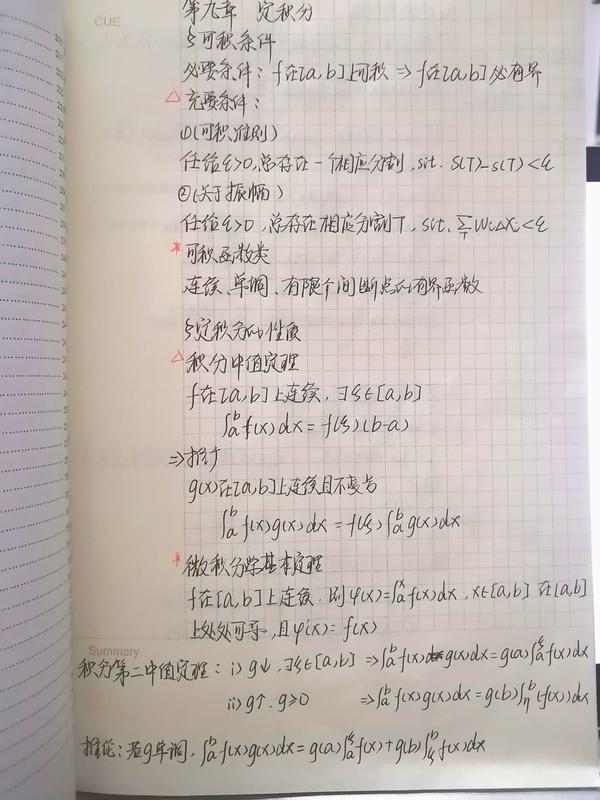 CUE
第九章 定积分
§可积条件
必要条件：f在[a,b]上可积 ⇒ f在[a,b]必有界
△ 充要条件：
①(可积准则)
任给ε>0,总存在一个相应分割,s.t. S(T)-s(T)<ε
②(关于振幅)
任给ε>0,总存在相应分割T,s.t. ∑_T ωᵢΔxᵢ<ε
* 可积函数类
连续、单调、有限个间断点的有界函数
§定积分的性质
△ 积分中值定理
f在[a,b]上连续,∃ξ∈[a,b]
∫_a^b f(x)dx=f(ξ)(b-a)
⇒推广
g(x)在[a,b]上连续且不变号
∫_a^b f(x)g(x)dx=f(ξ)∫_a^b g(x)dx
* 微积分学基本定理
f在[a,b]上连续.则φ(x)=∫_a^x f(x)dx,x∈[a,b]在[a,b]
上处处可导,且φ(x)=f(x)
Summary
积分第二中值定理：i) g↓,∃ξ∈[a,b] ⇒∫_a^b f(x)g(x)dx=g(a)∫_a^ξ f(x)dx
ii) g↑.g≥0 ⇒∫_a^b f(x)g(x)dx=g(b)∫_η^b f(x)dx
推论：若g单调,∫_a^b f(x)g(x)dx=g(a)∫_a^ξ f(x)+g(b)∫_ξ^b f(x)dx